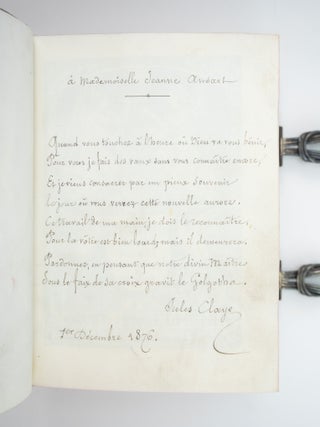 à Mademoiselle Jeanne
Quand vous touchez à l'heure où Dieu va vous bénir,
Pour vous je fais des vœux sans vous connaître encore,
Et je veux consacrer par un pieux souvenir
Le jour où vous verrez cette nouvelle aurore.
Ce travail de ma main, je dois le reconnaître,
Pour la vôtre est bien lourd, mais il demeurera.
Pardonnez, en pensant que notre divin Maître
Sous le faix de sa croix gravit le Golgotha.
Jules Claye
1er Décembre 1876.